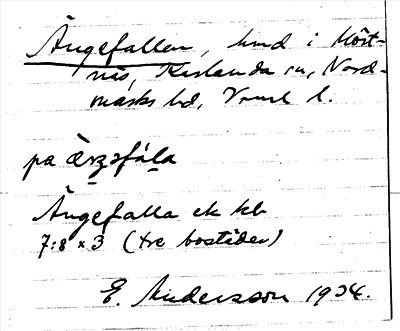 Ängefallen, hmd i Höst-
näs, Karlanda sn, Nord-
marks hd, Vrml l.
på ä̀rŋəfála
Ängefalla ek kb
7:8 x 3 (tre bostäder)
E. Andersson 1934.